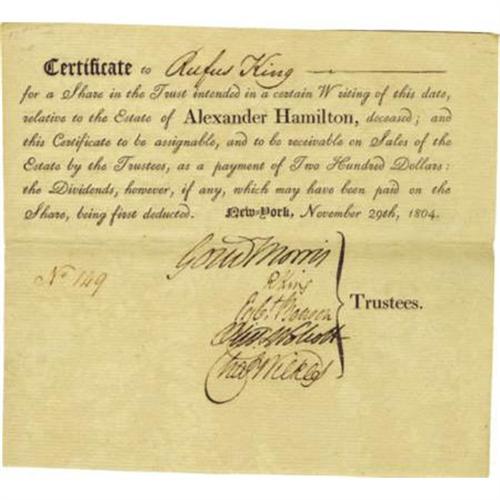 Certificate to Rufus King
for a Share in the Trust intended in a certain Writing of this date,
relative to the Estate of Alexander Hamilton, deceased; and
this Certificate to be assignable, and to be receivable on Sales of the
Estate by the Trustees, as a payment of Two Hundred Dollars:
the Dividends, however, if any, which may have been paid on the
Share, being first deducted. New-York, November 29th, 1804.
Gouv Morris
No 149
R King
Trustees.
Egbt Benson
Oliv. Wolcott
Chas Wilkes